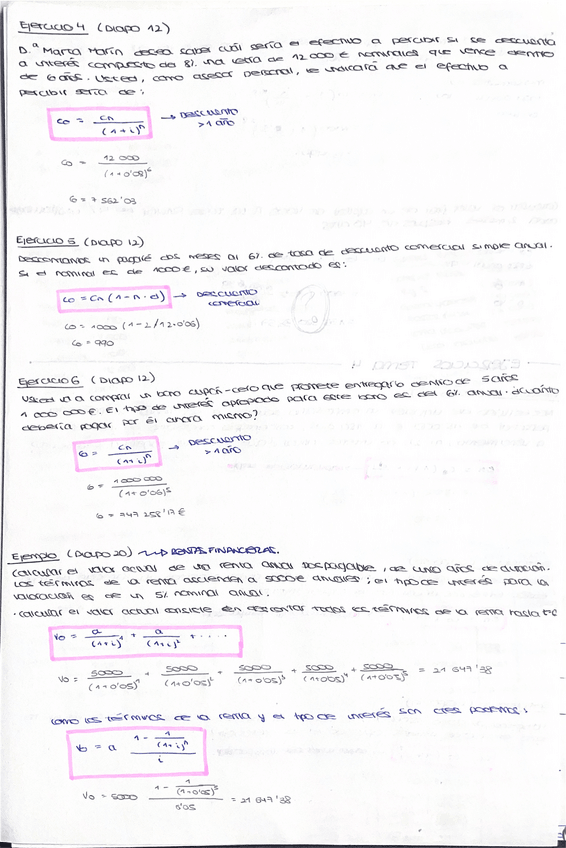 Ejercicio 4 (Diapo 12)
D.ª Marta Marín desea saber cuál sería el efectivo a percibir si se descuenta
a interés compuesto del 8% una letra de 12 000 € nominales que vence dentro
de 6 años. Usted, como asesor personal, le indicará que el efectivo a
percibir sería de:
Co = Cn / (1+i)^n → Descuento
>1 año
Co = 12 000 / (1+0'08)^6
Co = 7 562'03
Ejercicio 5 (Diapo 12)
Descontamos un pagaré dos meses al 6% de tasa de descuento comercial simple anual.
Si el nominal es de 1000 €, su valor descontado es:
Co = Cn (1 - n · d) → Descuento
comercial
Co = 1000 (1 - 2/12 · 0'06)
Co = 990
Ejercicio 6 (Diapo 12)
Usted va a comprar un bono cupón-cero que promete entregarle dentro de 5 años
1 000 000 €. El tipo de interés apropiado para este bono es del 6% anual. ¿Cuánto
debería pagar por él ahora mismo?
Co = Cn / (1+i)^n → Descuento
>1 año
Co = 1000000 / (1+0'06)^5
Co = 747 258'17 €
Ejemplo (Diapo 20) → RENTAS FINANCIERAS.
Calcular el valor actual de una renta anual pospagable, de cinco años de duración.
Los términos de la renta ascienden a 5000 € anuales; el tipo de interés para la
valoración es de un 5% nominal anual.
· Calcular el valor actual consiste en descontar todos los términos de la renta hasta t=0
Vo = a / (1+i)^1 + a / (1+i)^2 + ....
Vo = 5000 / (1+0'05)^1 + 5000 / (1+0'05)^2 + 5000 / (1+0'05)^3 + 5000 / (1+0'05)^4 + 5000 / (1+0'05)^5 = 21 647'38
Como los términos de la renta y el tipo de interés son ctes podemos:
Vo = a · (1 - 1 / (1+i)^n) / i
Vo = 5000 (1 - 1 / (1+0'05)^5) / 0'05 = 21 647'38